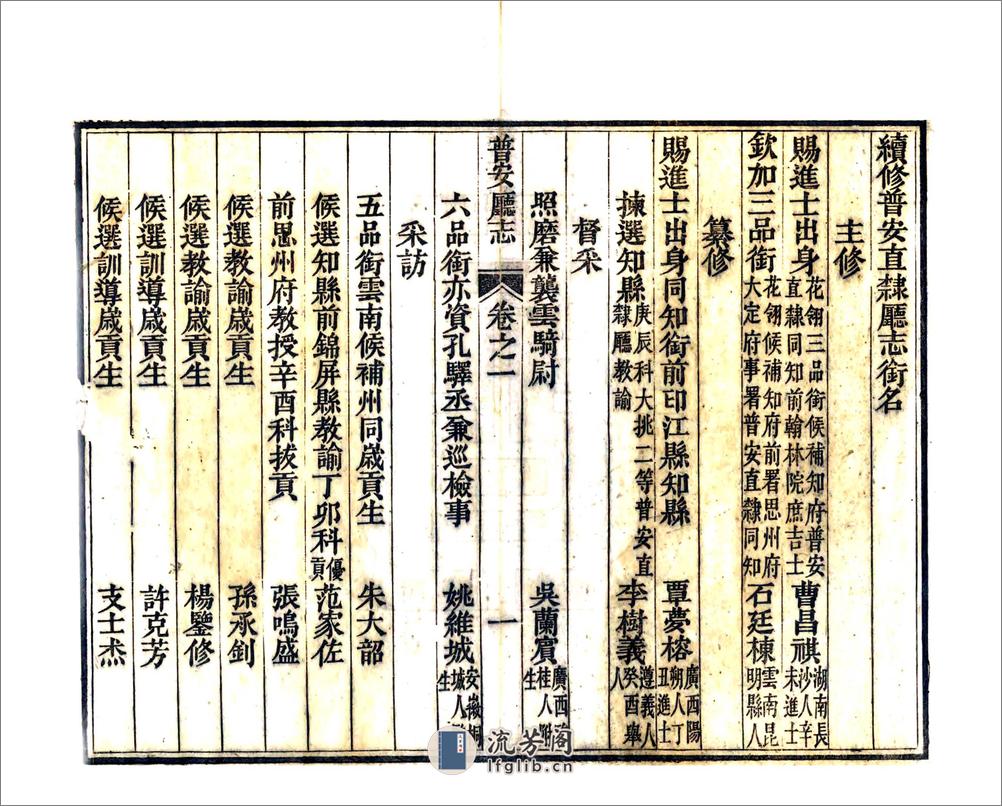 續修普安直隸廳志銜名
主修
賜進士出身花翎三品銜候補知府普安直隸同知前翰林院庶吉士曹昌祺湖南長沙人辛未進士
欽加三品銜花翎候補知府前署思州府大定府事署普安直隸同知石廷棟雲南昆明縣人
纂修
賜進士出身同知銜前印江縣知縣覃夢榕廣西陽朔人丁丑進士
揀選知縣庚辰科大挑二等普安直隸廳教諭李樹義遵義人癸酉舉人
督采
照磨兼襲雲騎尉吳蘭賓廣西桂人生
普安廳志 卷之一 一
六品銜亦資孔驛丞兼巡檢事姚維城安徽桐城人生
采訪
五品銜雲南候補州同歲貢生朱大韶
候選知縣前錦屏縣教諭丁卯科優貢范家佐
前思州府教授辛酉科拔貢張鳴盛
候選教諭歲貢生孫承釗
候選教諭歲貢生楊鑒修
候選訓導歲貢生許克芳
候選訓導歲貢生支士杰
流芳阁
lfglib.cn